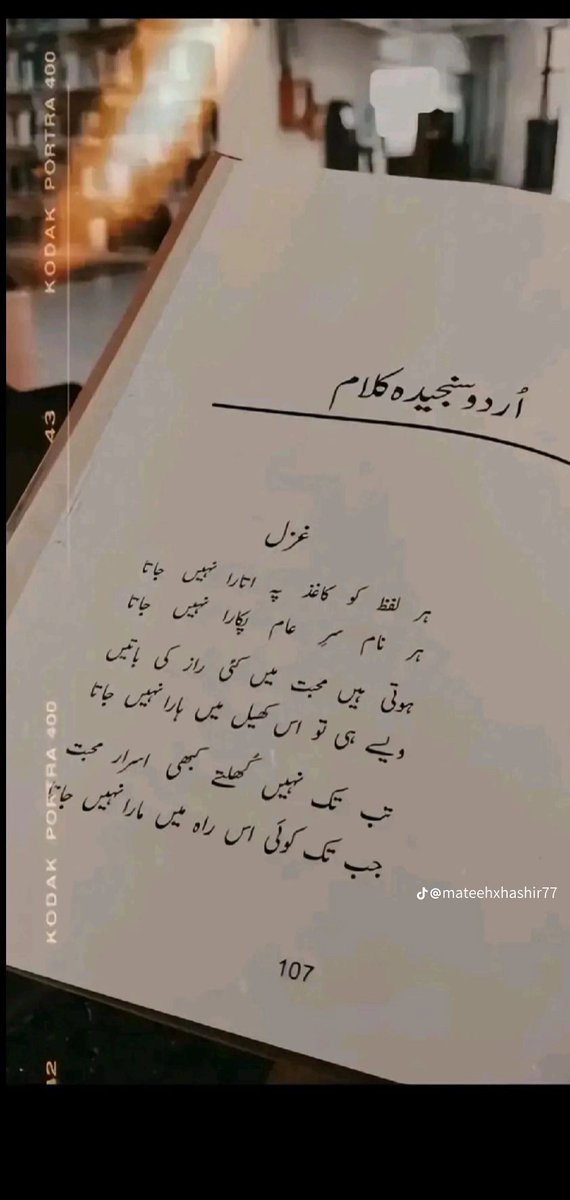 KODAK PORTRA 400
43
KODAK PORTRA 400
42
اُردو سنجیدہ کلام
غزل
ہر لفظ کو کاغذ پہ اتارا نہیں جاتا
ہر نام سرِ عام پکارا نہیں جاتا
ہوتی ہیں محبت میں کئی راز کی باتیں
ویسے ہی تو اس کھیل میں ہارا نہیں جاتا
تب تک نہیں کُھلتے کبھی اسرار محبت
جب تک کوئی اس راہ میں مارا نہیں جاتا
@mateehxhashir77
107